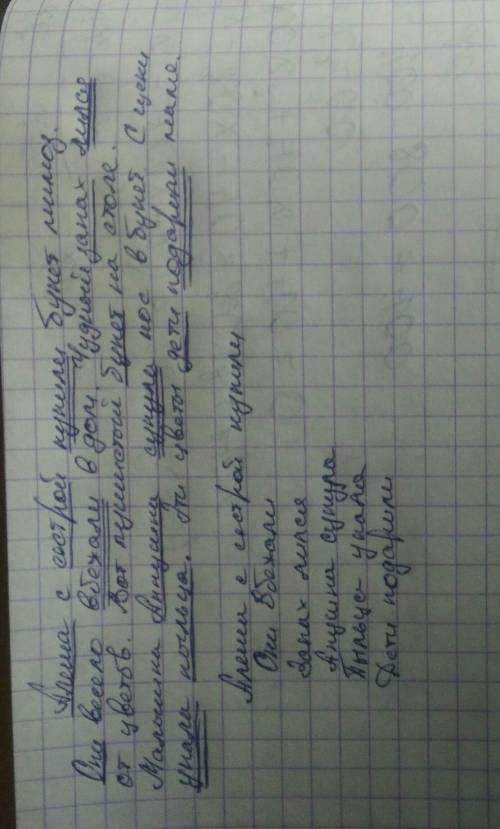 Алеша с сестрой купили букет мимоз.
Они весело вбежали в дом. Чудный запах лился
от цветов. Вот пушистый букет на столе.
Малышка Аннушка сунула нос в букет. С щеки
упала пыльца. Эти цветы дети подарили маме.
Алеша с сестрой купили
Они вбежали
Запах лился
Анушка сунула
Пыльца упала
Дети подарили